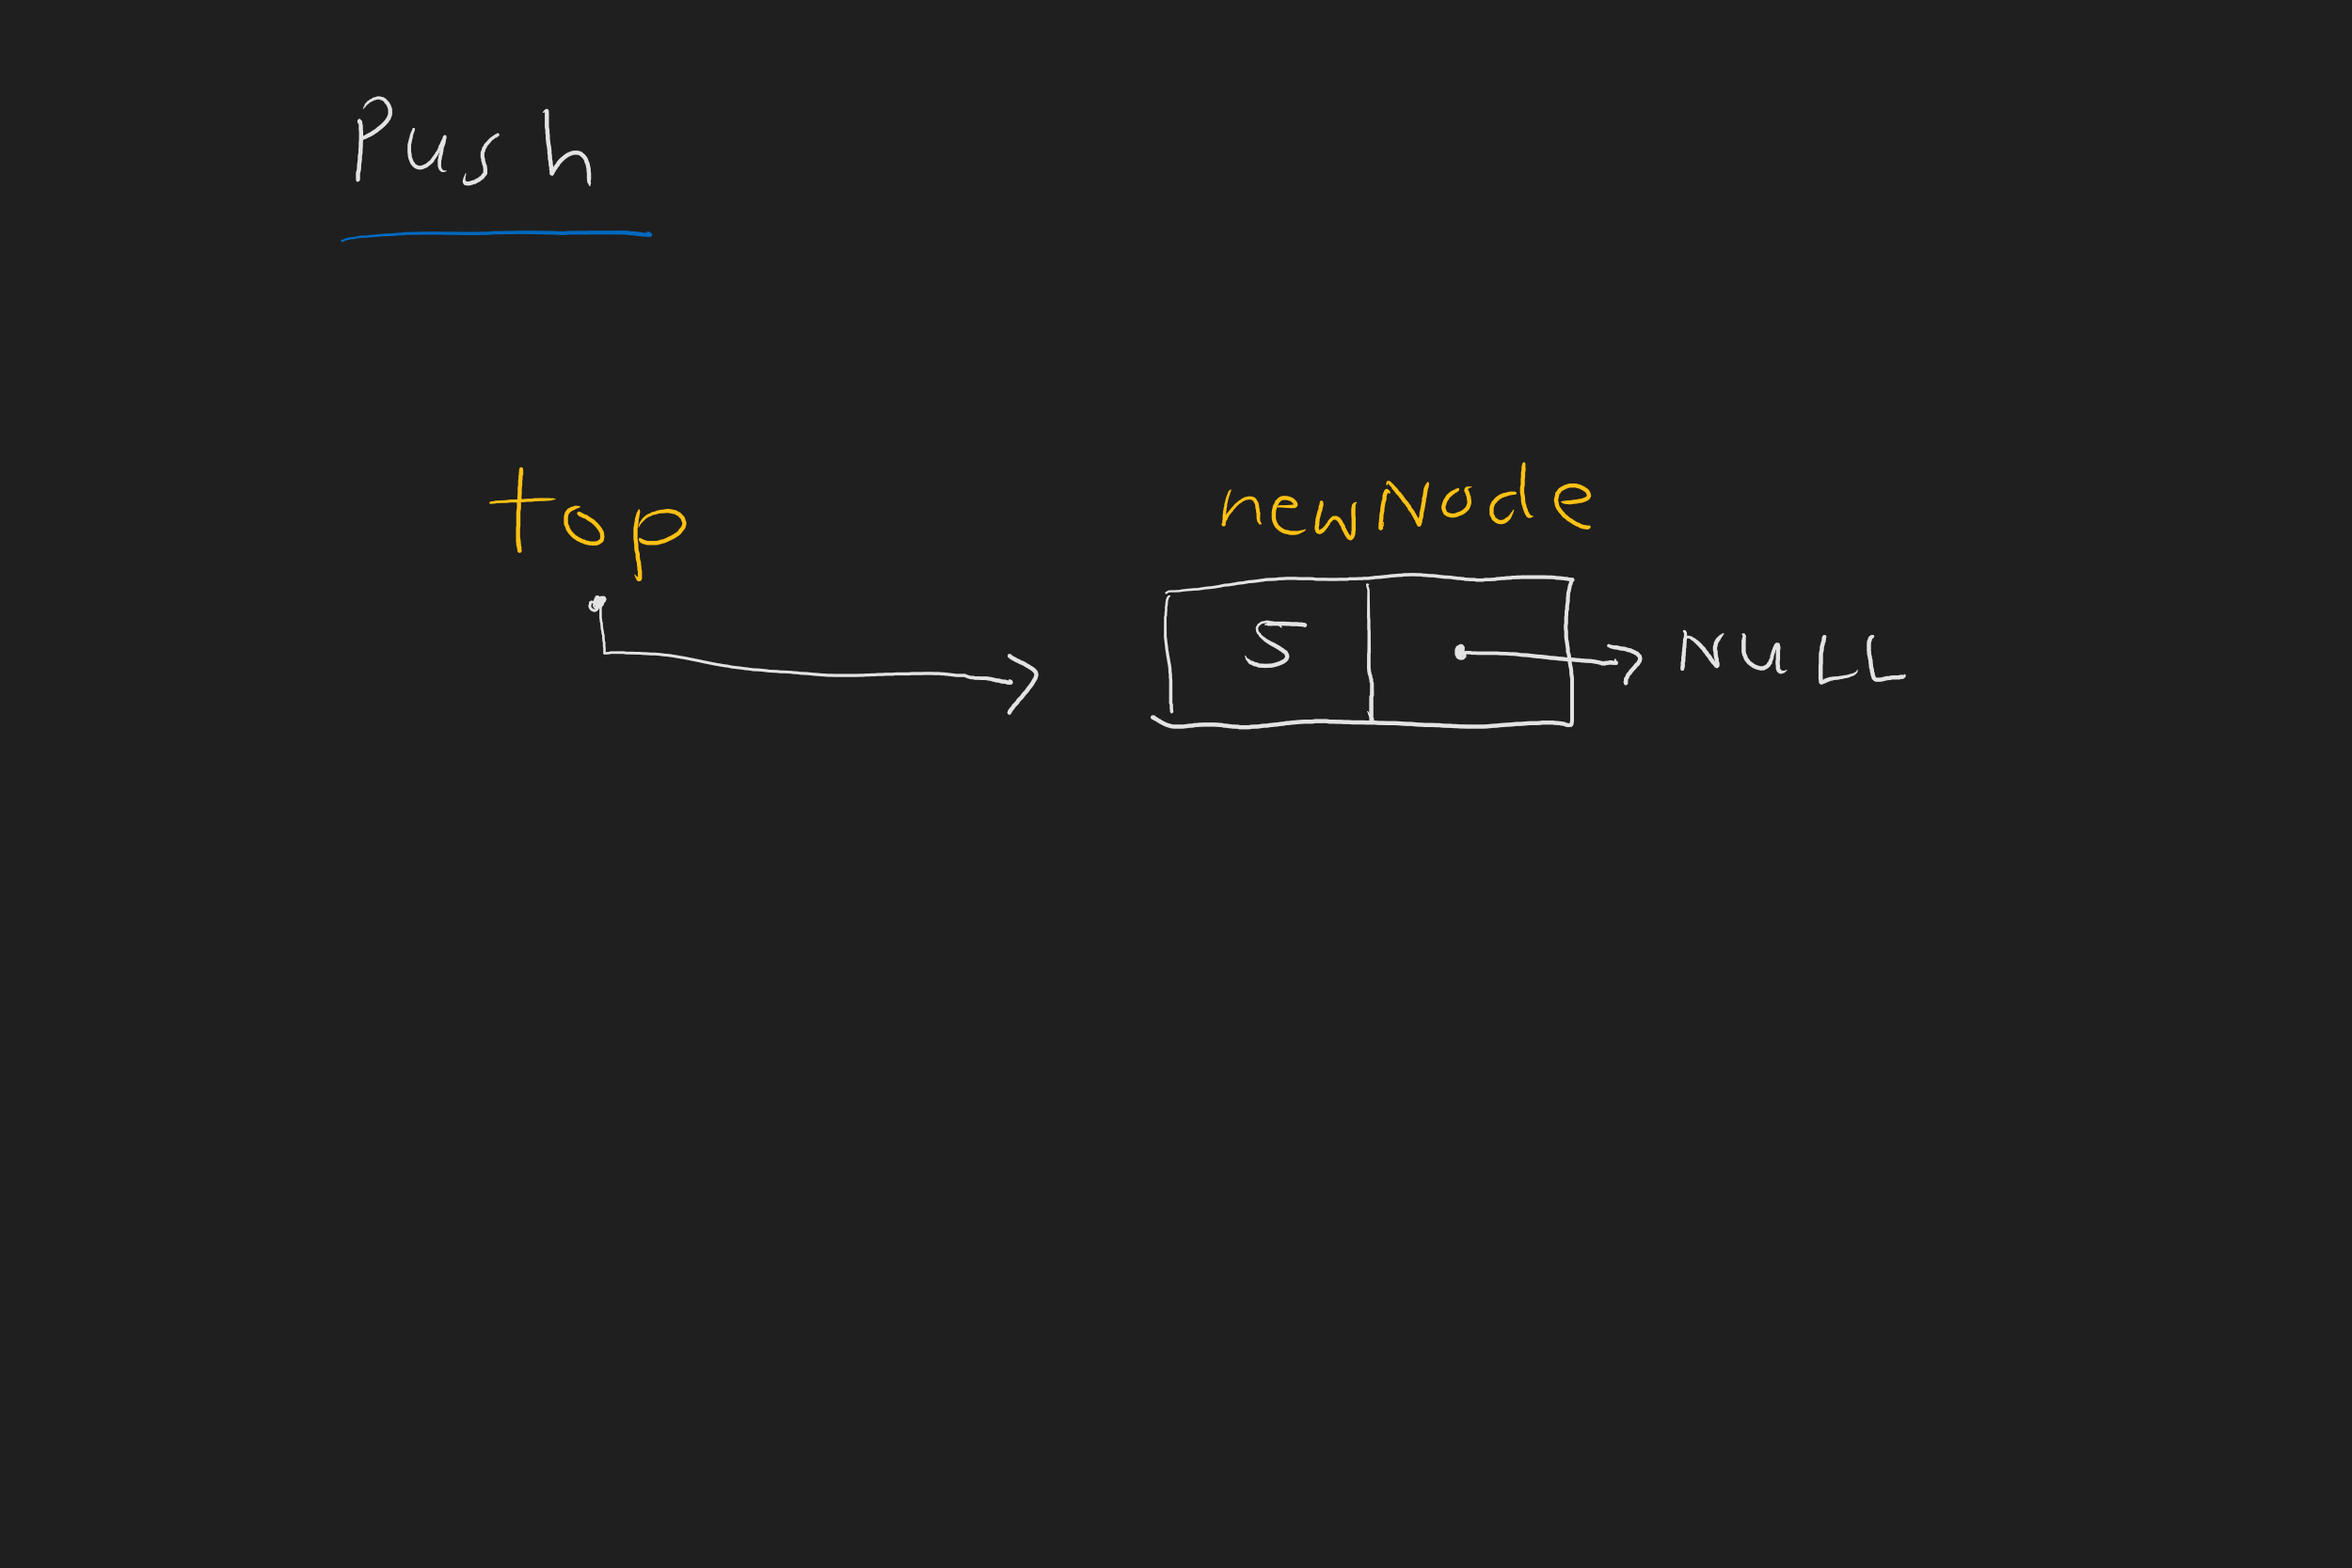 Push
top newNode
5 NULL